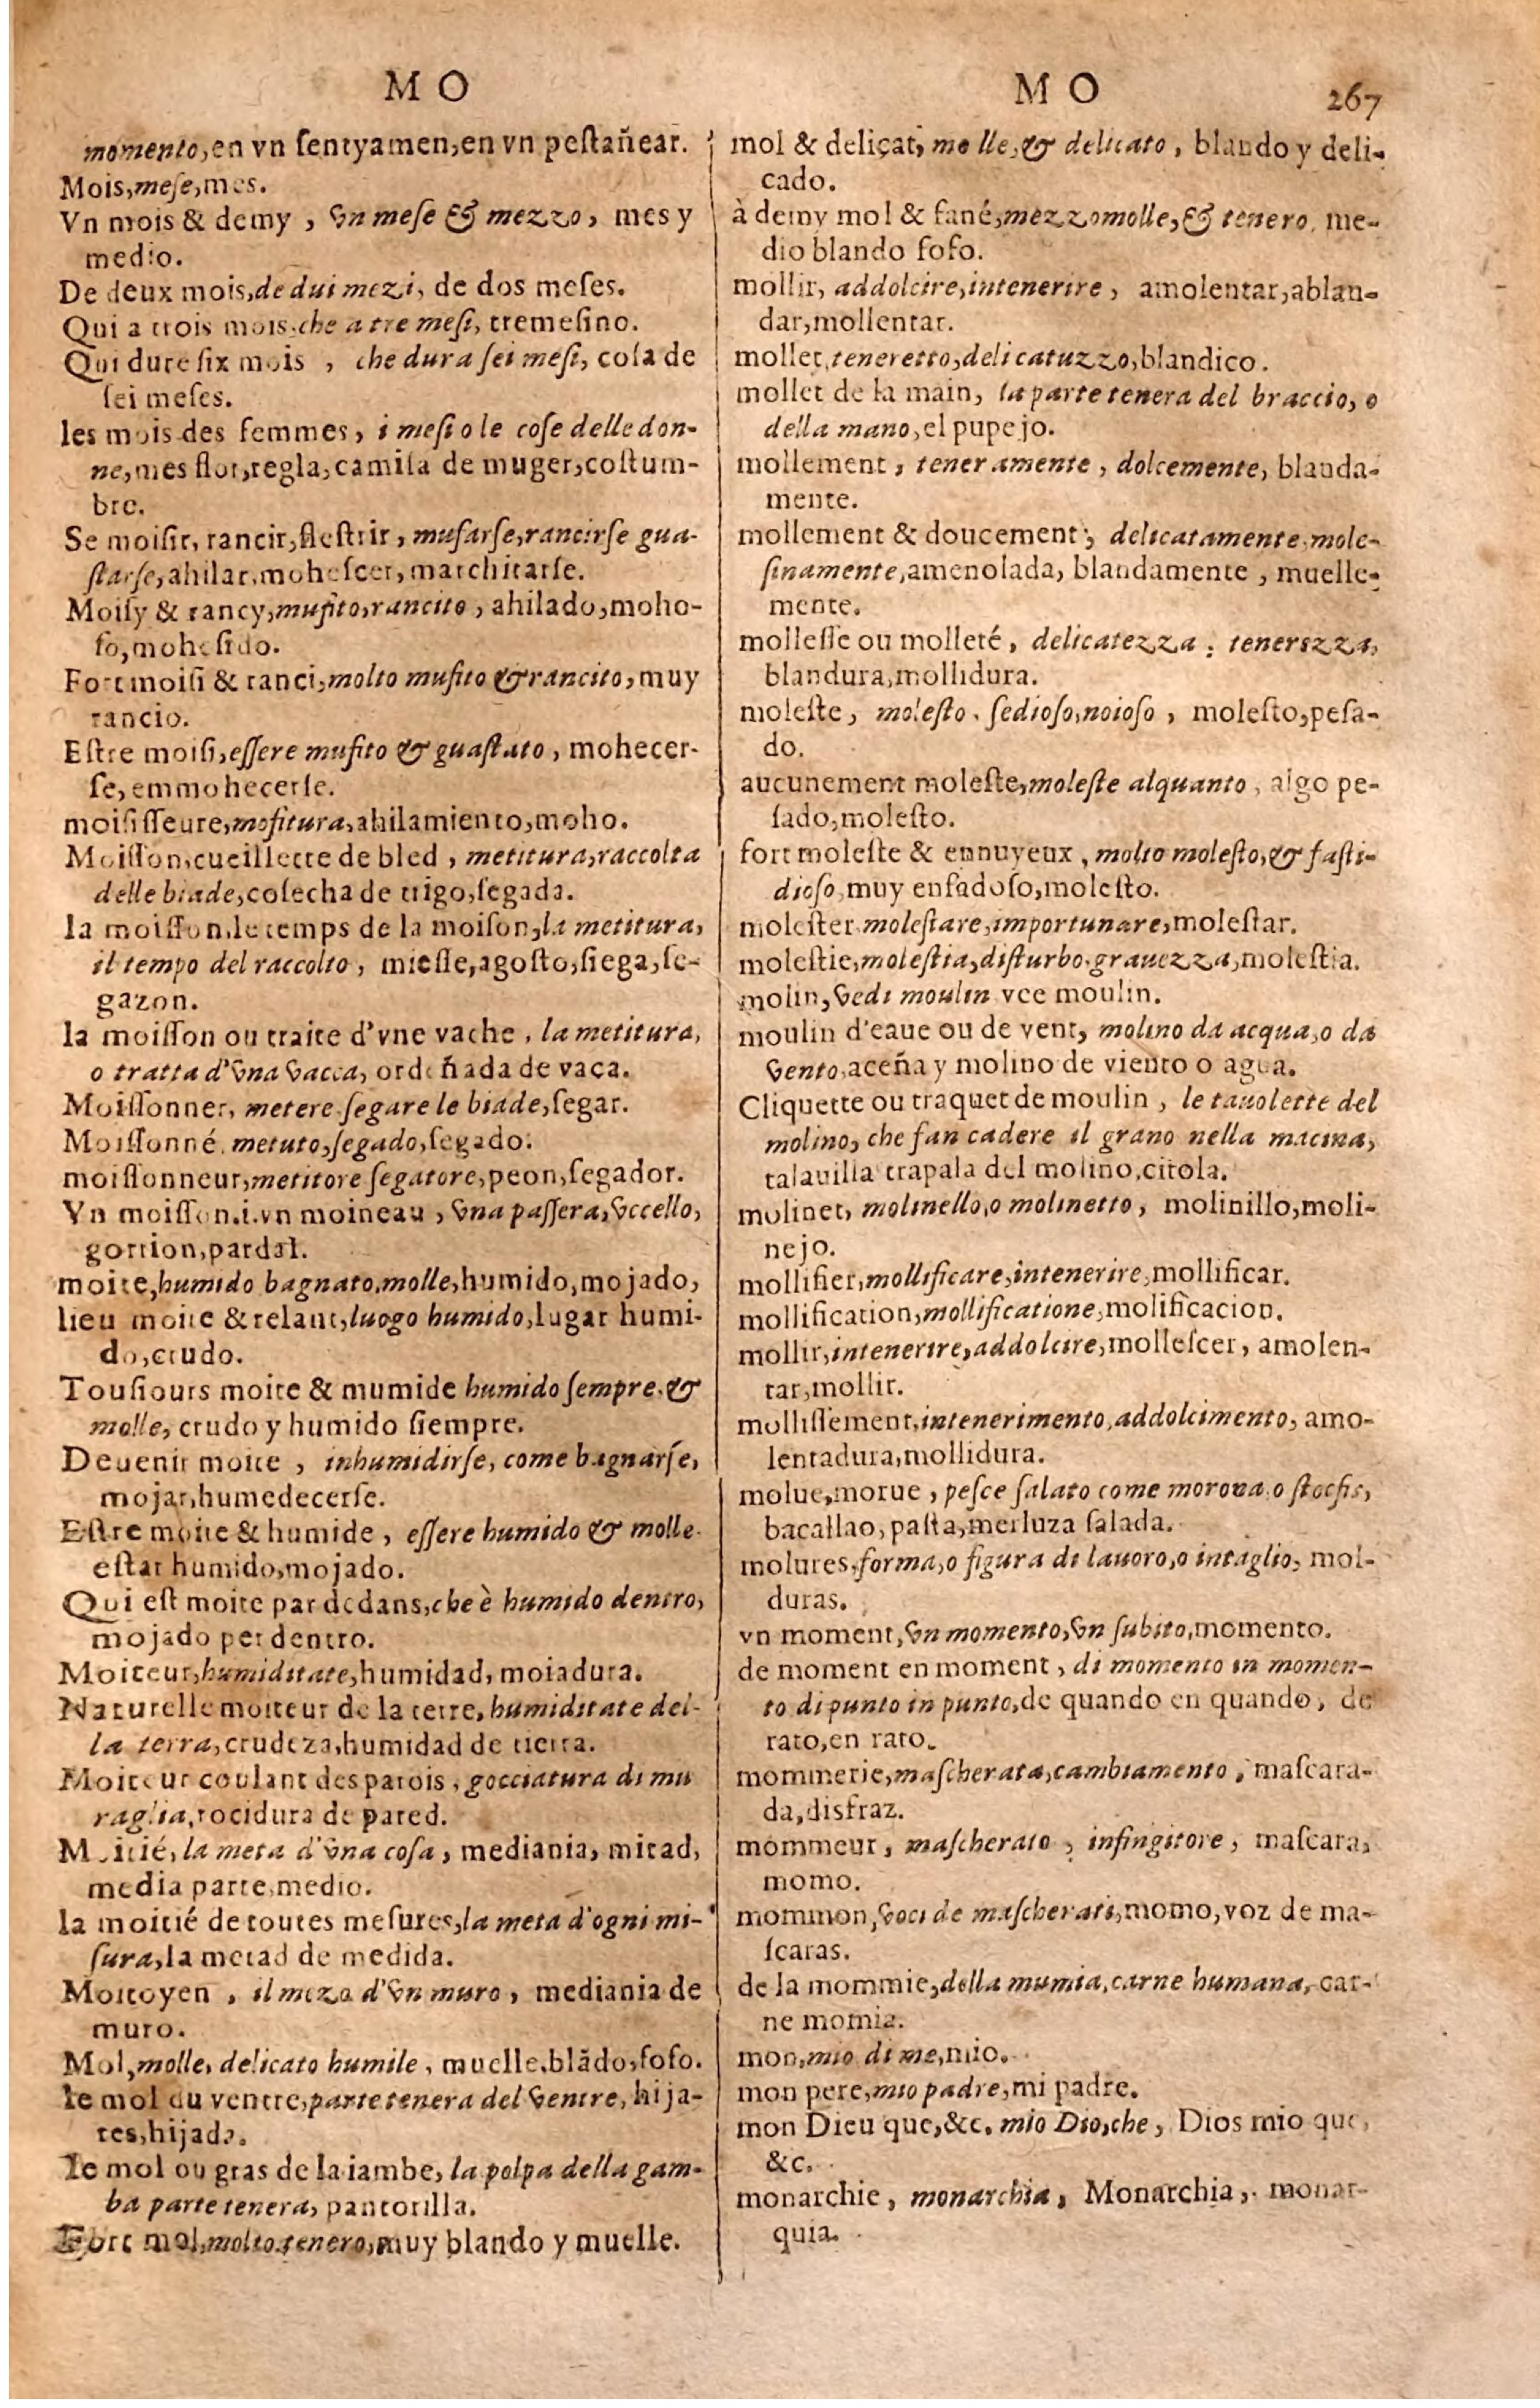 M O
momento, en vn sentyamen, en vn pestañear.
Mois, mese, mes.
Vn mois & demy, vn mese & mezzo, mes y
medio.
De deux mois, de dui mezi, de dos meses.
Qui a trois mois, che a tre mesi, tremesino.
Qui dure six mois, che dura sei mesi, cosa de
sei meses.
les mois des femmes, i mesi o le cose delle don-
ne, mes flor, regla, camisa de muger, costum-
bre.
Se moisir, rancir, flestrir, mufarse, rancirse gua-
starse, ahilar, mohescer, marchitarse.
Moisy & rancy, mufito, rancito, ahilado, moho-
so, mohesido.
Fort moisi & ranci, molto mufito & rancito, muy
rancio.
Estre moisi, essere mufito & guastato, mohecer-
se, emmohecerse.
moisisseure, mofitura, ahilamiento, moho.
Moisson, cueillette de bled, metitura, raccolta
delle biade, cosecha de trigo, segada.
la moisson, le temps de la moison, la metitura,
il tempo del raccolto, miesse, agosto, siega, se-
gazon.
la moisson ou traite d'vne vache, la metitura,
o tratta d'vna vacca, ordeñada de vaca.
Moissonner, metere segare le biade, segar.
Moissonné, metuto, segado, segado.
moissonneur, metitore segatore, peon, segador.
Vn moisson.i.vn moineau, vna passera, vccello,
gorrion, pardal.
moite, humido bagnato, molle, humido, mojado,
lieu moite & relant, luogo humido, lugar humi-
do, crudo.
Tousiours moite & mumide humido sempre, &
molle, crudo y humido siempre.
Deuenir moite, inhumidirse, come bagnarse,
mojar, humedecerse.
Estre moite & humide, essere humido & molle
estar humido, mojado.
Qui est moite par dedans, che è humido dentro,
mojado per dentro.
Moiteur, humiditate, humidad, moiadura.
Naturelle moiteur de la terre, humiditate del-
la terra, crudeza, humidad de tierra.
Moiteur coulant des parois, gocciatura di mu
raglia, rocidura de pared.
Moitié, la meta d'vna cosa, mediania, mitad,
media parte, medio.
la moitié de toutes mesures, la meta d'ogni mi-
sura, la metad de medida.
Moitoyen, il mezo d'vn muro, mediania de
muro.
Mol, molle, delicato humile, muelle, blãdo, fofo.
le mol du ventre, parte tenera del ventre, hija-
res, hijada.
le mol ou gras de la iambe, la polpa della gam-
ba parte tenera, pantorilla.
Fort mol, molto tenero, muy blando y muelle.
M O 267
mol & deliçat, molle, & delicato, blando y deli-
cado.
à demy mol & fané, mezzomolle, & tenero, me-
dio blando fofo.
mollir, addolcire, intenerire, amolentar, ablan-
dar, mollentar.
mollet, teneretto, delicatuzzo, blandico.
mollet de la main, la parte tenera del braccio, o
della mano, el pupejo.
mollement, teneramente, dolcemente, blanda-
mente.
mollement & doucement, delicatamente, mole-
sinamente, amenolada, blandamente, muelle-
mente.
mollesse ou molleté, delicatezza, tenerszza,
blandura, mollidura.
moleste, molesto, sedioso, noioso, molesto, pesa-
do.
aucunement moleste, moleste alquanto, algo pe-
sado, molesto.
fort moleste & ennuyeux, molto molesto, & fasti-
dioso, muy enfadoso, molesto.
molester molestare, importunare, molestar.
molestie, molestia, disturbo, grauezza, molestia.
molin, vedi moulin vee moulin.
moulin d'eaue ou de vent, molino da acqua, o da
vento, aceña y molino de viento o agua.
Cliquette ou traquet de moulin, le tauolette del
molino, che fan cadere il grano nella macina,
talauilla trapala del molino, citola.
molinet, molinello, o molinetto, molinillo, moli-
nejo.
mollifier, mollificare, intenerire, mollificar.
mollification, mollificatione, molificacion.
mollir, intenerire, addolcire, mollescer, amolen-
tar, mollir.
mollissement, intenerimento, addolcimento, amo-
lentadura, mollidura.
molue, morue, pesce salato come morona o stocfis,
bacallao, pasta, merluza salada.
molures, forma, o figura di lauoro, o intaglio, mol-
duras.
vn moment, vn momento, vn subito, momento.
de moment en moment, di momento in momen-
to di punto in punto, de quando en quando, de
rato, en rato.
mommerie, mascherata, cambiamento, mascara-
da, disfraz.
mommeur, mascherato, infingitore, mascara,
momo.
mommon, voci de mascherati, momo, voz de ma-
scaras.
de la mommie, della mumia, carne humana, car-
ne momia.
mon, mio di me, mio.
mon pere, mio padre, mi padre.
mon Dieu que, &c. mio Dio, che, Dios mio que,
&c.
monarchie, monarchia, Monarchia, monar-
quia.